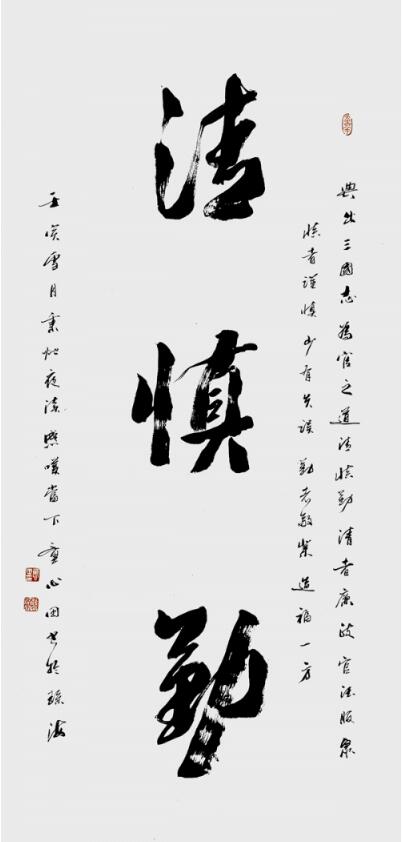 典出三國志為官之道清慎勤清者廉政官服眾
慎者謹慎少有失誤勤者敬業造福一方
清慎勤
壬寅雪月秉燭夜讀嘆當下童心田書於海